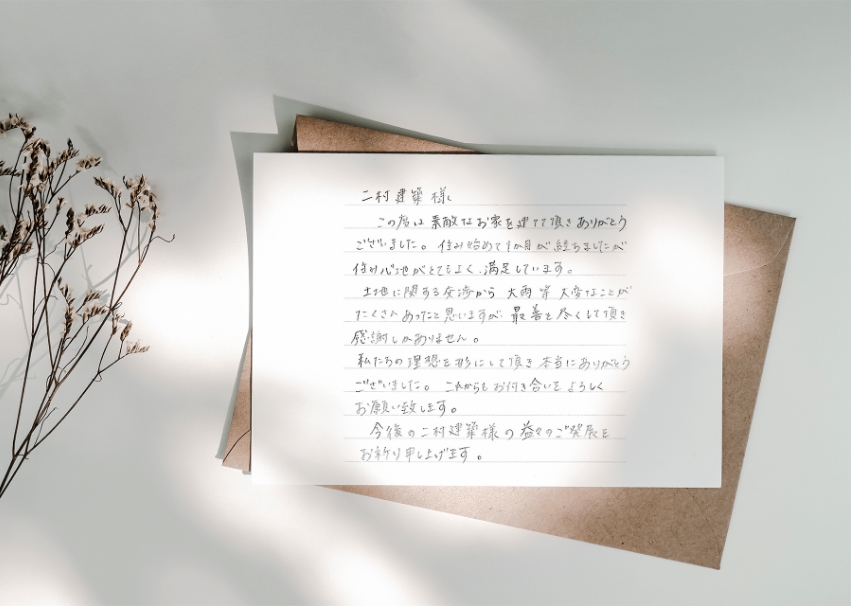 二村建築様
この度は素敵なお家を建てて頂きありがとう
ございました。住み始めて1か月が経ちましたが
住み心地がとてもよく、満足しています。
土地に関する交渉から大雨等大変なことが
たくさんあったと思いますが、最善を尽くして頂き
感謝しかありません。
私たちの理想を形にして頂き本当にありがとう
ございました。これからもお付き合いをよろしく
お願い致します。
今後の二村建築様の益々のご発展を
お祈り申し上げます。